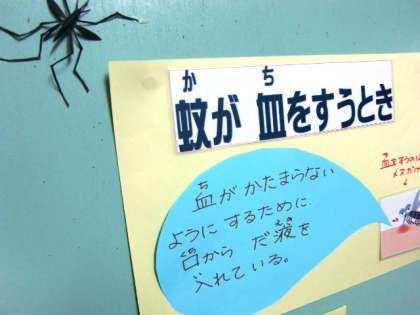 か ち
蚊が 血をすうとき
ち
血が かたまらない
ようにするために
口から だ液を
入れている。
血をすうのは
メスだけ